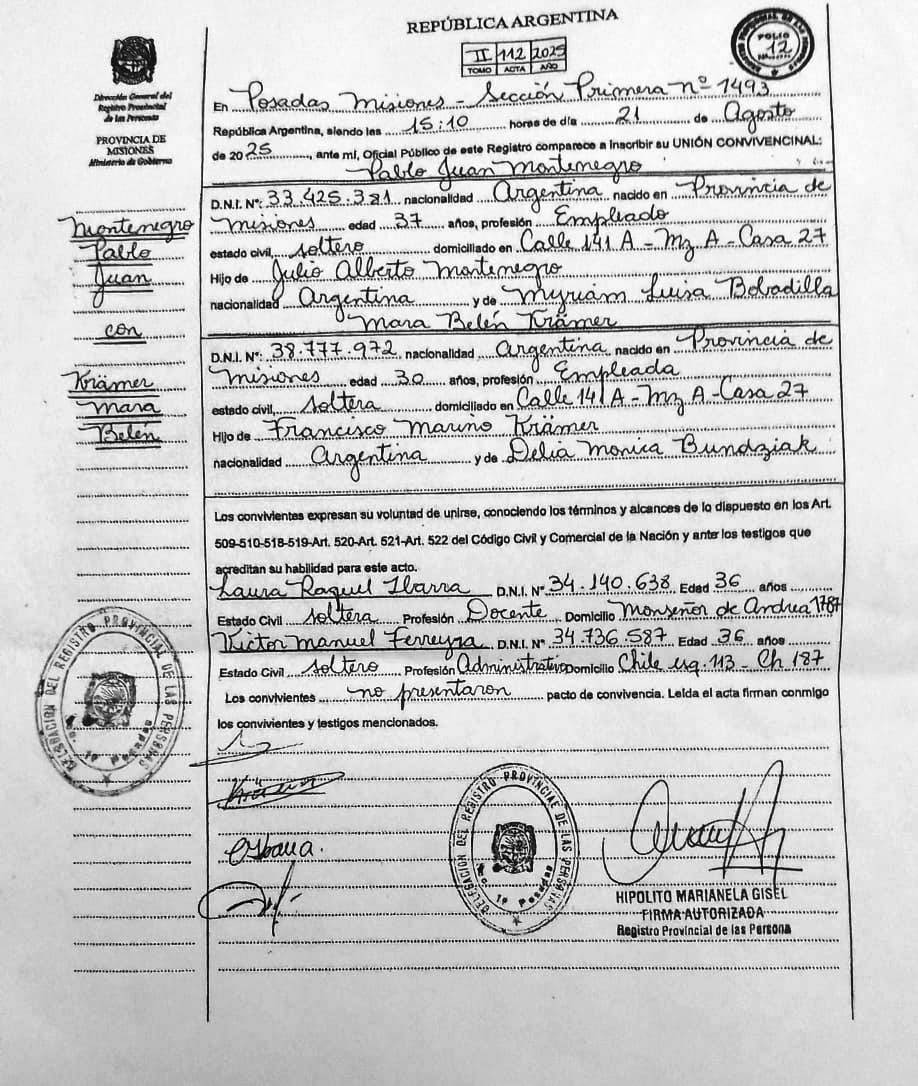 REPÚBLICA ARGENTINA
II 112 2025
TOMO ACTA AÑO
FOLIO
12
Dirección General del
Registro Provincial
de las Personas
PROVINCIA DE
MISIONES
Ministerio de Gobierno
En Posadas Misiones - Sección Primera Nº 1493
República Argentina, siendo las 15:10 horas de día 21 de Agosto
de 2025, ante mi, Oficial Público de este Registro comparece a inscribir su UNIÓN CONVIVENCINAL:
Pablo Juan Montenegro
D.N.I. Nº: 33.425.381 nacionalidad Argentina nacido en Provincia de
Misiones edad 37 años, profesión Empleado
estado civil, soltero domiciliado en Calle 141 A - Mz A - Casa 27
Hijo de Julio Alberto Montenegro
nacionalidad Argentina y de Myriam Luisa Bobadilla
Mara Belén Krämer
D.N.I. Nº: 38.777.972 nacionalidad Argentina nacido en Provincia de
Misiones edad 30 años, profesión Empleada
estado civil, soltera domiciliado en Calle 141 A - Mz A - Casa 27
Hijo de Francisco Marino Krämer
nacionalidad Argentina y de Delia Monica Bundziak
Montenegro
Pablo
Juan
con
Krämer
Mara
Belén
Los convivientes expresan su voluntad de unirse, conociendo los términos y alcances de lo dispuesto en los Art.
509-510-518-519-Art. 520-Art. 521-Art. 522 del Código Civil y Comercial de la Nación y ante los testigos que
acreditan su habilidad para este acto.
Laura Raquel Ibarra D.N.I. Nº 34.140.638 Edad 36 años
Estado Civil soltera Profesión Docente Domicilio Monseñor de Andrea 1787
Victor Manuel Ferreyra D.N.I. Nº 34.736.587 Edad 36 años
Estado Civil soltero Profesión Administrativo Domicilio Chile esq. 113 - Ch 187
Los convivientes no presentaron pacto de convivencia. Leída el acta firman conmigo
los convivientes y testigos mencionados.
DELEGACION DEL REGISTRO PROVINCIAL DE LAS PERSONAS
Sec. 1ª Posadas
Krämer
DELEGACION DEL REGISTRO PROVINCIAL DE LAS PERSONAS
Sec. 1ª Posadas
HIPOLITO MARIANELA GISEL
FIRMA AUTORIZADA
Registro Provincial de las Persona